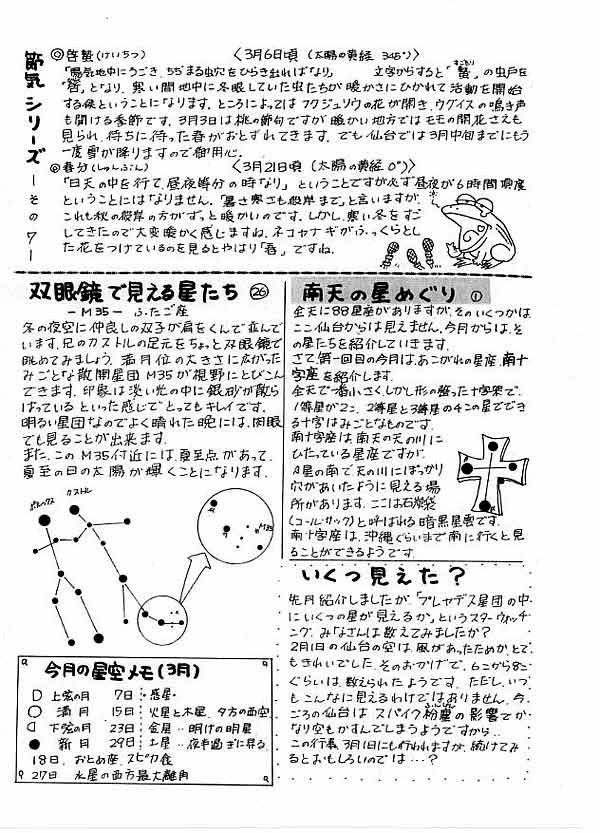 節気シリーズ ーその7ー
◎啓蟄(けいちつ) 〈3月6日頃 (太陽の黄経 345°)〉
「陽気地中にうごき、ちぢまる虫穴をひらき出ればなり」 文字からすると「蟄」の虫戸を
すごもり
「啓」となり、寒い間地中に冬眠していた虫たちが暖かさにひかれて活動を開始
する候ということになります。ところによってはフクジュソウの花が開き、ウグイスの鳴き声
も聞ける季節です。3月3日は桃の節句ですが暖かい地方ではモモの開花さえも
見られ、待ちに待った春がおとずれてきます。でも仙台では3月中旬までにもう
一度雪が降りますので御用心。
◎春分(しゅんぶん) 〈3月21日頃 (太陽の黄経 0°)〉
「日天の中を行て、昼夜等分の時なり」ということですが必ず昼夜が
ということにはなりません。「暑さ寒さも彼岸まで」と言いますが、
これも秋の彼岸の方がずっと暖かいのです。しかし、寒い冬をすご
してきたので大変暖かく感じますね。ネコヤナギがふっくらとし
た花をつけているのを見るとやはり「春」ですね。
双眼鏡で見える星たち ㉖
ーM35ー ふたご座
冬の夜空に仲良しの双子が肩をくんで並んで
います。兄のカストルの足元をちょっと双眼鏡で
眺めてみましょう。満月位の大きさに広がった
みごとな散開星団M35が視野にとびこん
できます。印象は淡い光の中に銀砂が散ら
ばっているといった感じでとってもキレイです。
明るい星団なのでよく晴れた晩には、肉眼
でも見ることが出来ます。
また、このM35付近には、夏至点があって、
夏至の日の太陽が輝くことになります。
ポルックス
カストル
M35
南天の星めぐり ①
全天に88星座がありますが、そのいくつかは
ここ仙台からは見えません。今月からは、そ
の星たちを紹介していきます。
さて、第一回目の今月は、あこがれの星座、南十
字座を紹介します。
全天で一番小さく、しかし形の整った十字架で、
1等星が2コ、2等星と3等星の4コの星ででき
る十字はみごとなものです。
南十字座は、南天の天の川に
ひたっている星座ですが、
α星の南で天の川にぽっかり
穴があいたように見える場
所があります。ここは石炭袋
(コールサック)と呼ばれる暗黒星雲です。
南十字座は、沖縄ぐらいまで南に行くと見
ることができるようです。
いくつ見えた?
先月紹介しましたが、「プレヤデス星団の中
にいくつの星が見えるか」というスターウォッチ
ング、みなさんは数えてみましたか?
2月1日の仙台の空は、風があったためか、とて
もきれいでした。そのおかげで、6こから8こ
ぐらいは、数えられたようです。ただし、いつ
もこんなに見えるわけではありません。今
ごろの仙台は スパイク粉塵の影響でか
ふんじん
なり空もかすんでしまうようですから‥
この行事、3月1日にも行われますが、続けてみ
るとおもしろいのでは…?
今月の星空メモ(3月)
上弦の月 7日 惑星
満月 15日 火星と木星‥夕方の西空
下弦の月 23日 金星‥明けの明星
新月 29日 土星‥夜半過ぎに昇る
18日、おとめ座、スピカ食
27日 水星の西方最大離角